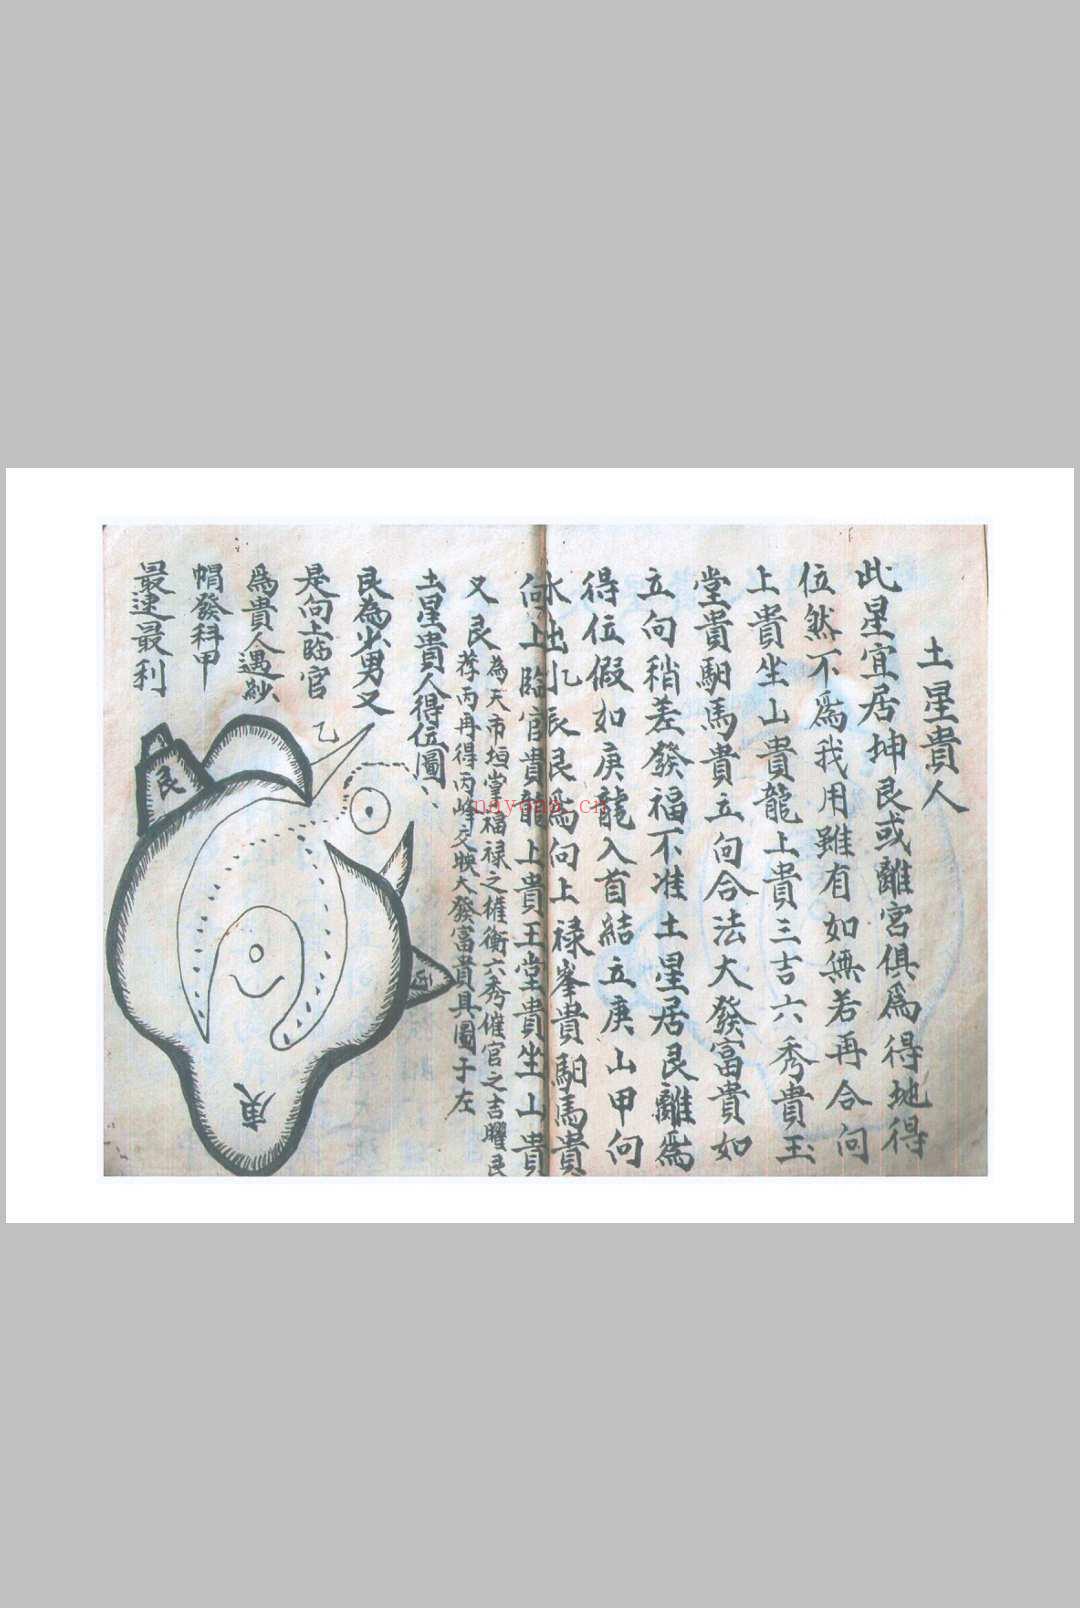 土星貴人
此星宜居坤艮或離宮俱爲得地得
位然不爲我用雖有如無若再合向
上貴坐山貴龍上貴三吉六秀貴玉
堂貴馹馬貴立向合法大發富貴如
立向稍差發福不准土星居艮離爲
得位假如庚龍入首結立庚山甲向
水出乙辰艮爲向上禄峯貴馹馬貴
向上臨官貴龍上貴玉堂貴坐山貴
又艮為天市垣掌福禄之權衡六秀催官之吉曜艮
荐丙再得丙峰交映大發富貴具圖于左
土星貴人得位圖
艮為少男又
是向上临官
爲貴人遇紗
帽發科甲
最速最利
乙
艮
丙
庚
nayona.cn